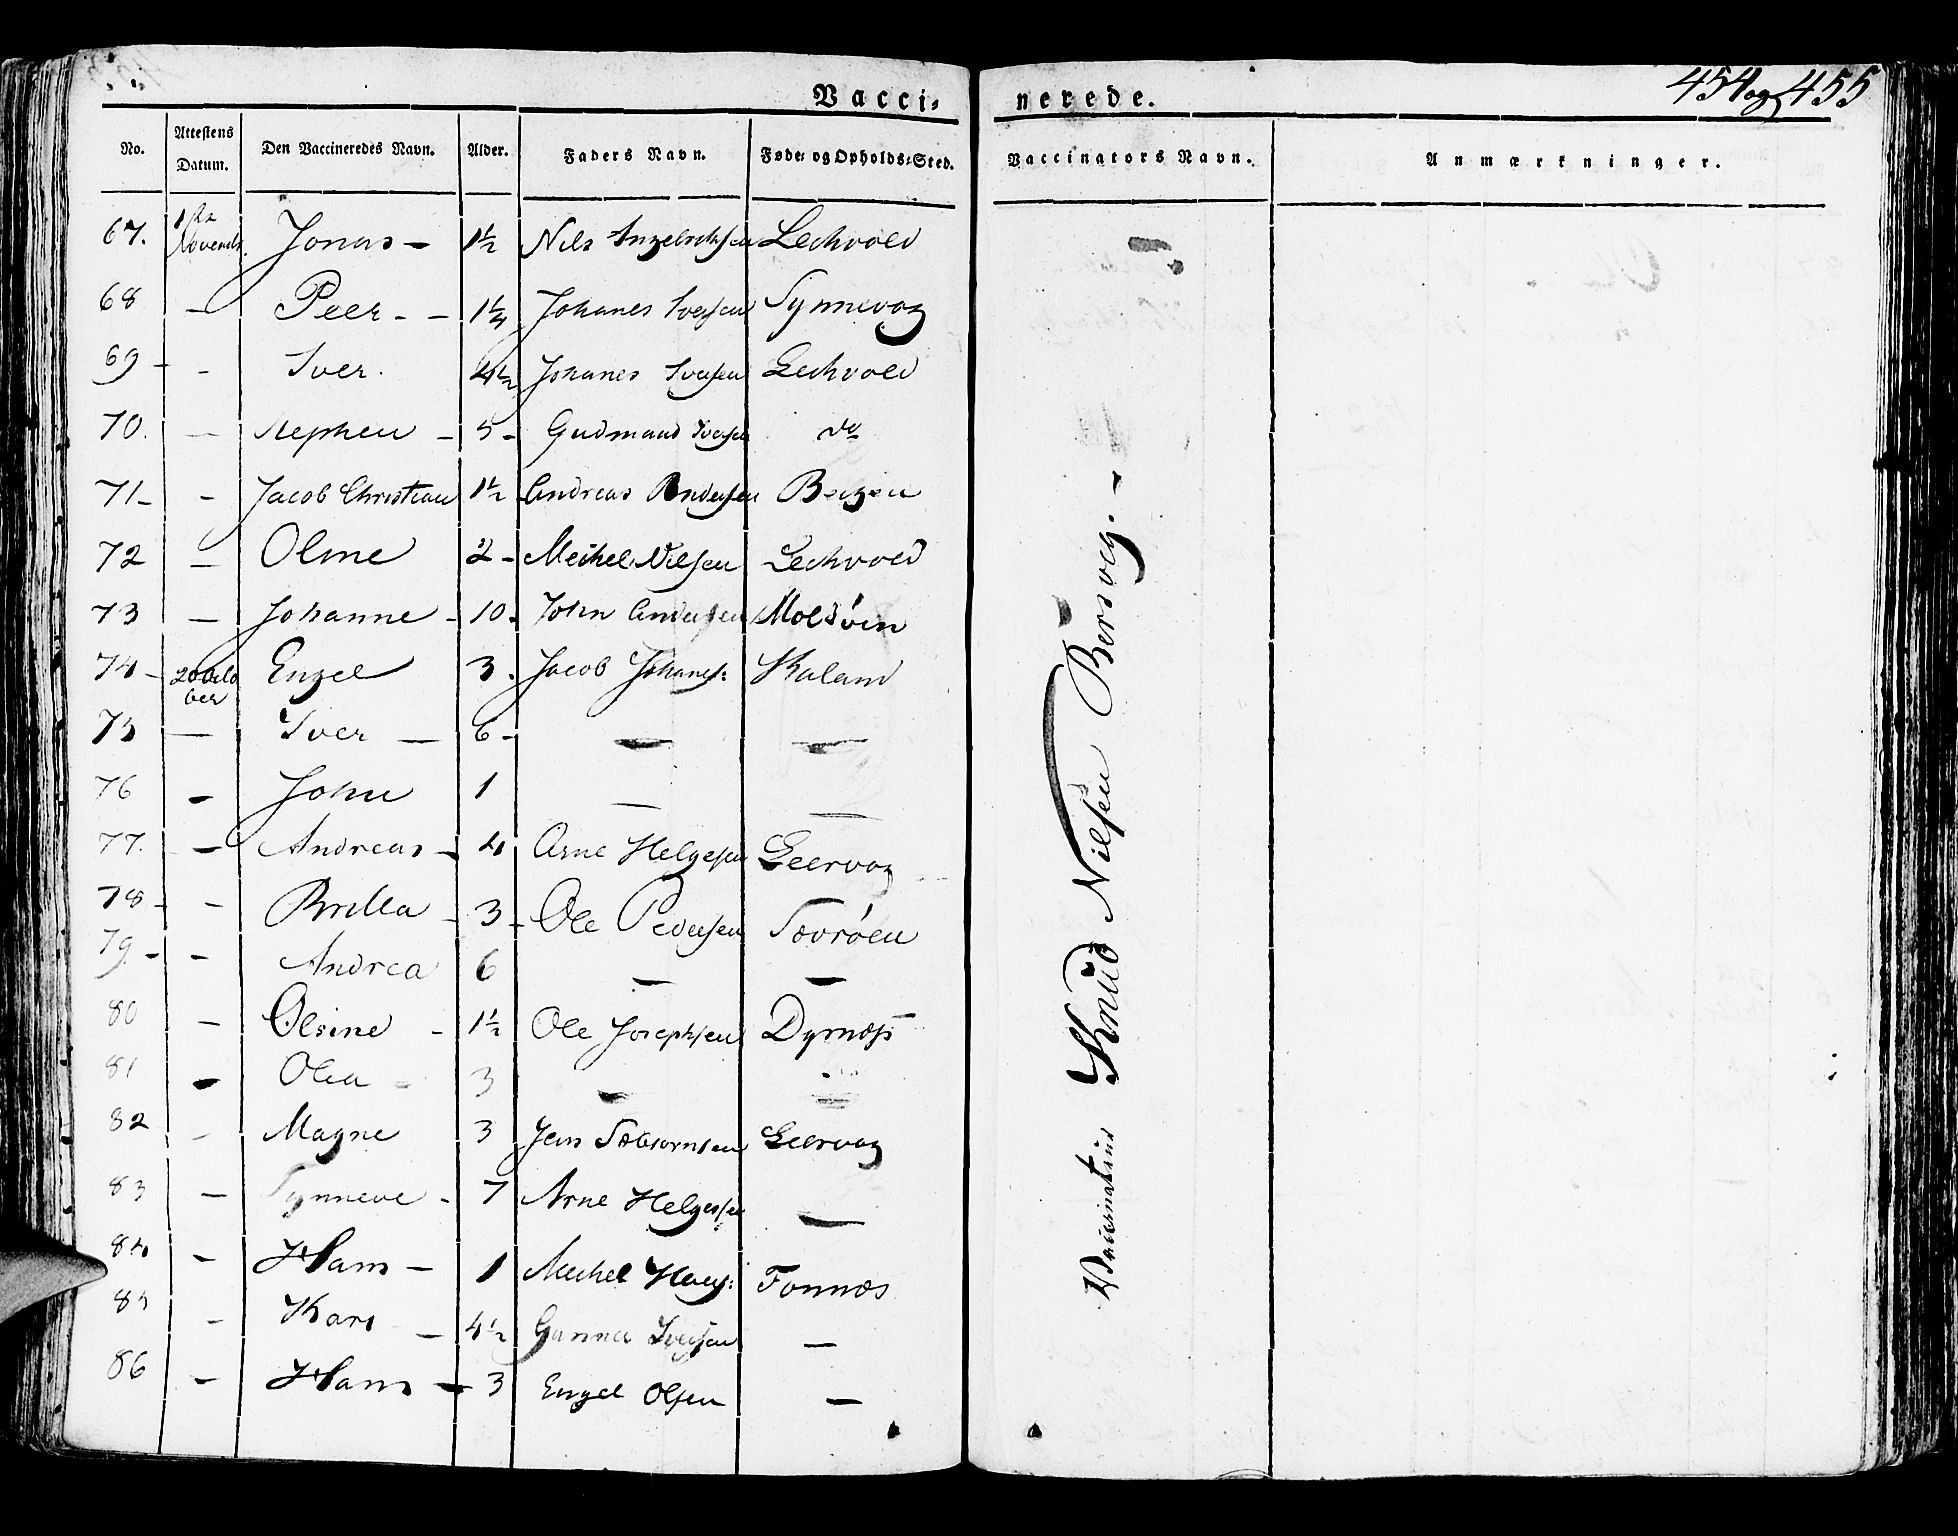 Vacci-
nerede.
454 og 455
No. Attestens Datum. Den Vaccineredes Navn. Alder. Faders Navn. Føde- og Opholds-Sted. Vaccinators Navn. Anmærkninger.
67. 1ste Novemb. Jonas – 1½ Nils Ingelschsen Lechvold
68 – Peer – – 1¼ Johanes Iversen Synnevog
69 – – Iver. 4½ Johanes Iversen Lechvold
70. – Stephen – 5 – Gudmand Iversen do
71 – – Jacob Christian 1½ Andreas Andersen Bergen
72 – Oline 2 – Meihel Nilsen Lechvold
73 – Johanne – 10. John Andersen Moldøen
74 – Engel 3. Jacob Johanes: Kaland
75 – Iver – 6 – – –
76 – John 1 – –
77. – Andreas – 4 Arne Helgesen Leervog
78 – – Britta – 3 – Ole Pedersen Sævrøen
79. – – Andrea 6 – –
80 – Olsine – 1½ Ole Josephsen Dyrnæs
81 – Olea – 3 –
82 – Magne 3 Jens Sæbiørnsen Leervog
83 – Synneve – 7 Arne Helgesen –
84 – Hans – 1 Meihel Fonnæs
85 – Kari – 4½ Gunner Iversen –
86 – Hans – 3 Engel Olsen –
Knud Nilsen Bersvog. –